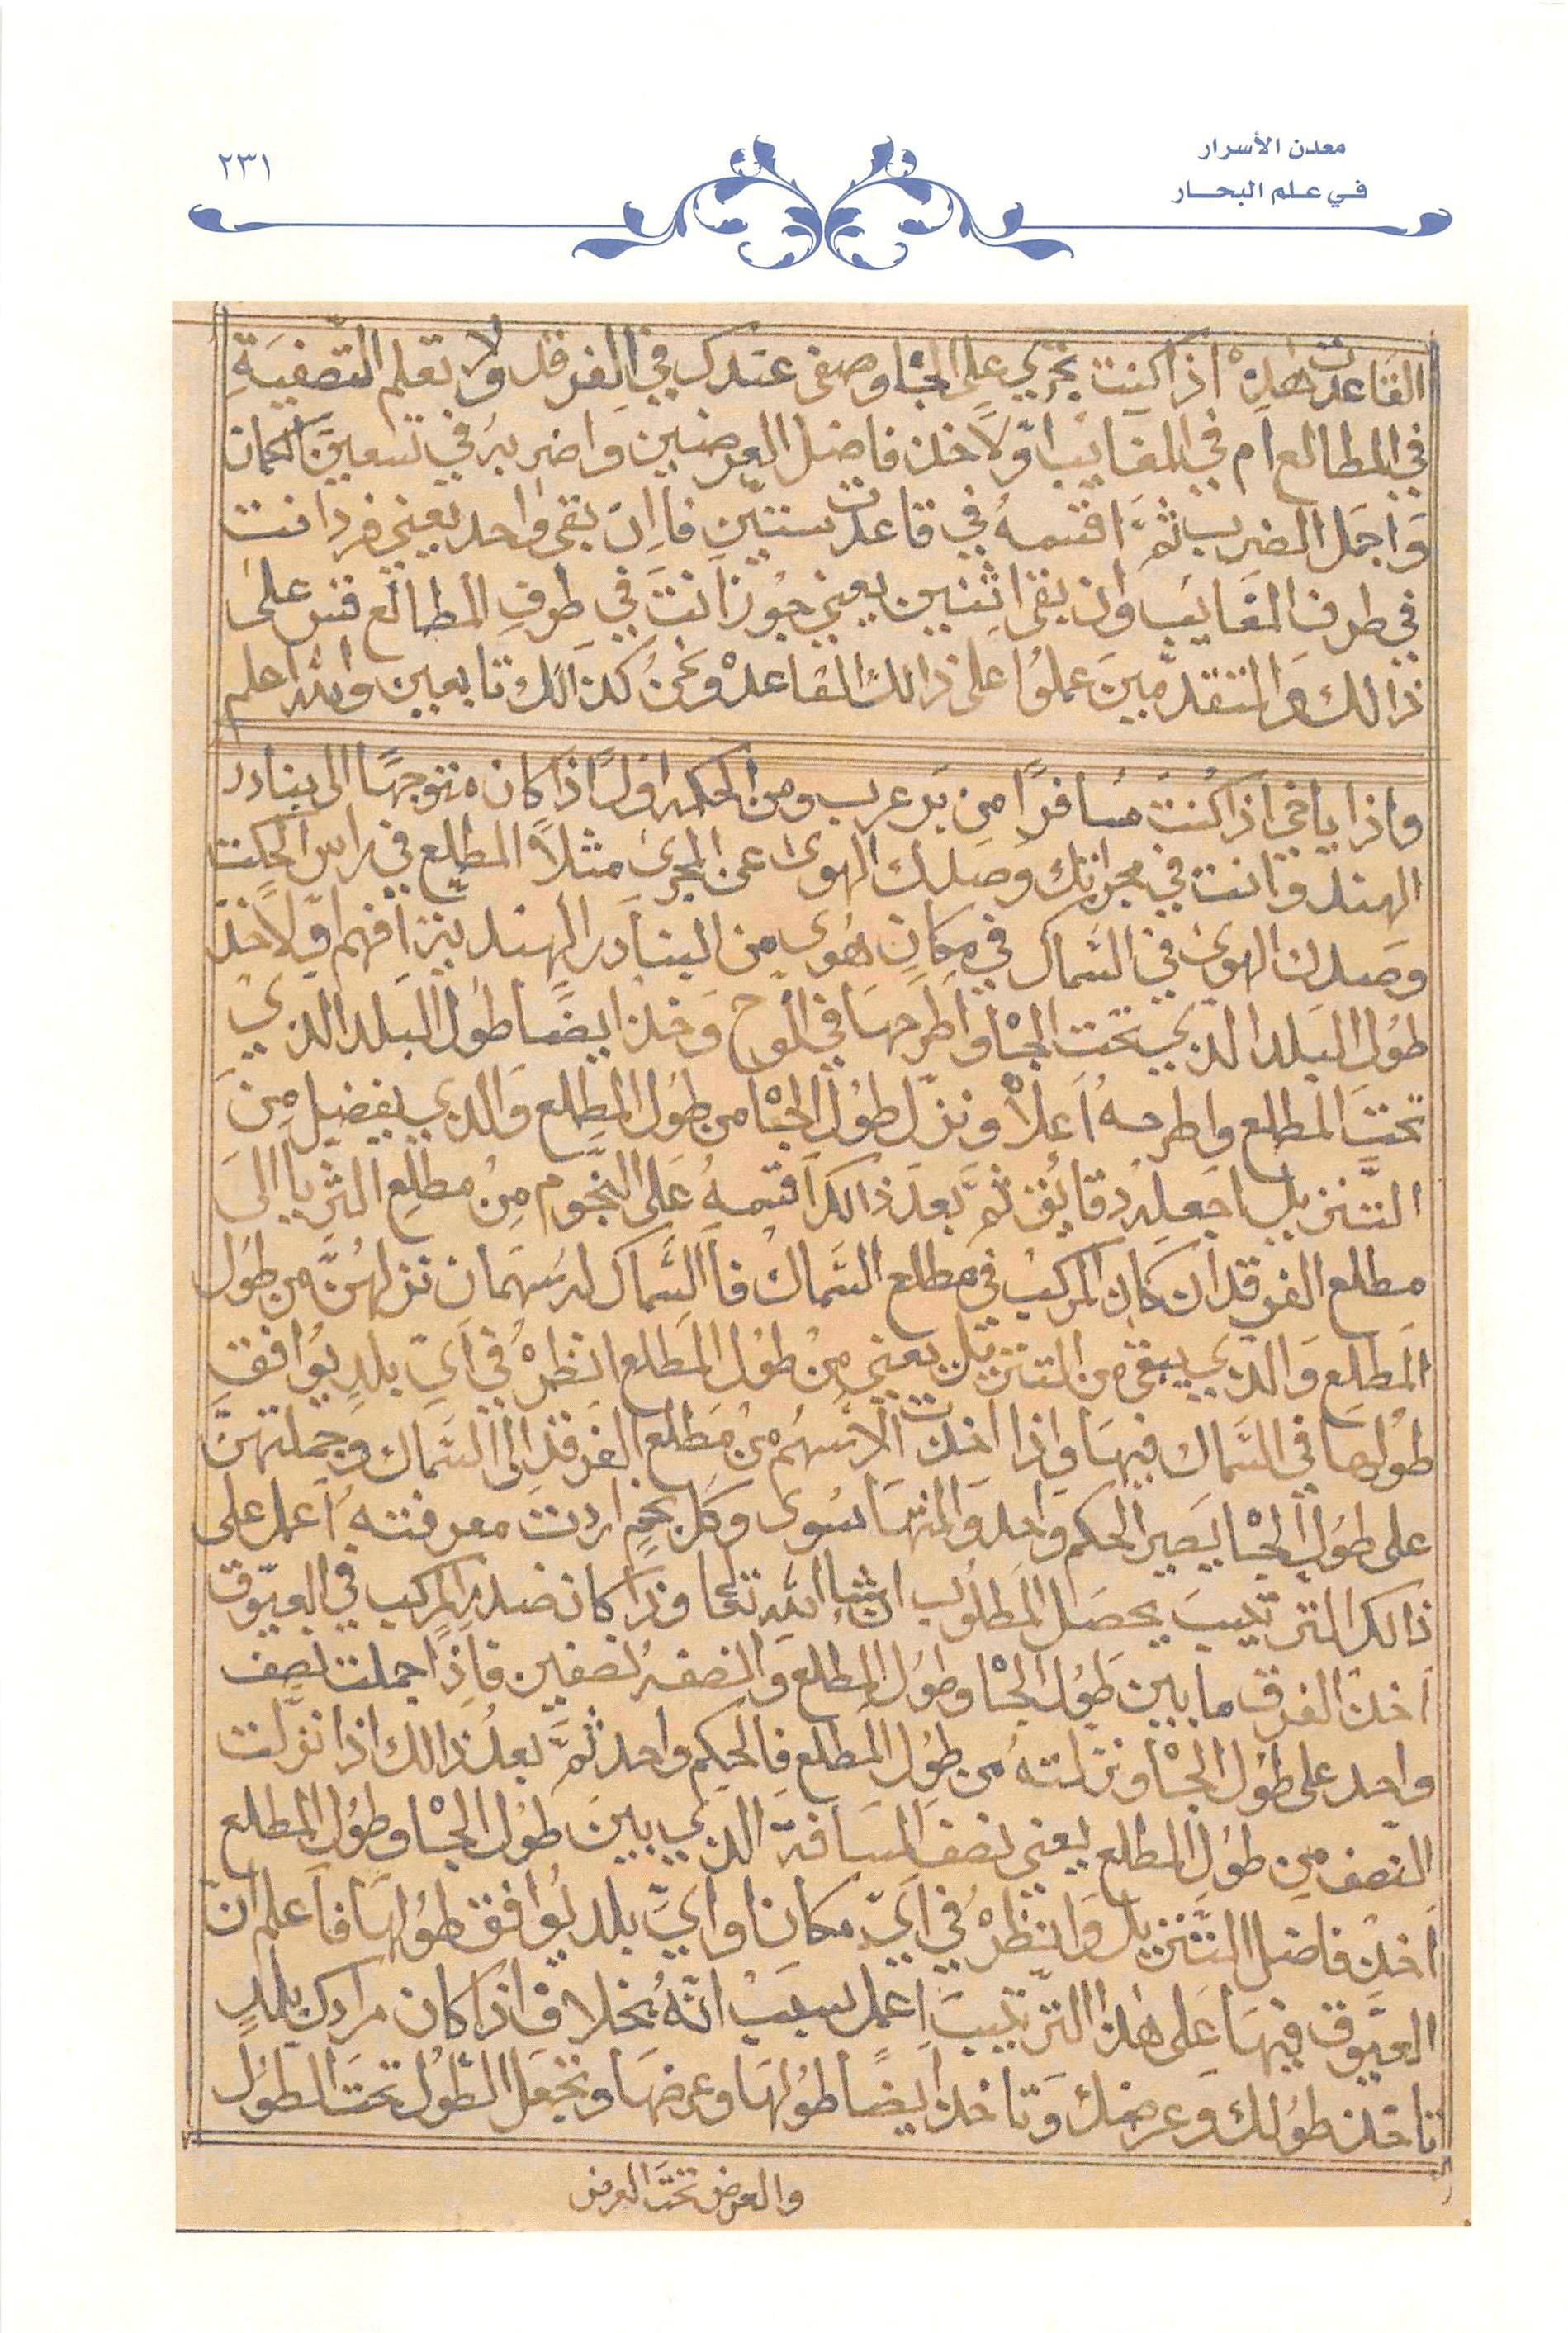 معدن الأسرار
في علم البحار
٢٣١
القاعدت هٰذِهْ اذا كنت تجري على الجاْ وصفى عندك في الفرقد ولا تعلم التصفيَةِ
في المطالع ام في المغايب اوّلاً خذ فاضل العرضين واضربه في تسعين الكمان
وَاجمَل الضرب ثمَّ اقسمهُ في قاعدت ستين فاإن بقى واحد يعني فرد انت
في طرف المغايب وان بقى اثنين يعني جوز انتَ في طرفِ المطالع قس على
ذالك والمتقدمينَ عملوُا على ذالك القاعدهْ ونحنُ كذالك تابعين والله اعلم
واذا ياخي اذا كنتَ مسَافرًا من بَر عرب ومن الحكمه اوّلاً اذا كان متوجهًا الى بنادر
الهند وانت في مجراتك وصلك الهوى عن المجرى مثلاً المطلع في راس الحكت
وصَلك الهوى في السماك في مكانِ هُوى من البنادر الهند بتز افهم اوّلاً خذ
طوُل البَلد الذي تحت الجاْ واطرحهَا في الوح وَخذ ايضًا طوُل البلد الذي
تحتَ المطلع واطرحهُ اَعلاْ ونزّل طوُل الجاْ من طوُل المطلع وَالذي يفضل مِنَ
التَّنزيل اجعله دقايق ثمَّ بعدَ ذالك اقسمهُ عَلى النّجوم مِنْ مطلعِ الثريا الىَ
مطلع الفرقد ان كان المركبْ في مطلع السَّماكْ فاَ السَّماك له سَهمان نزلهُنَّ من طوُل
المَطلعِ وَالذي يبقى من التنزيل يعني مِنْ طوُل المَطلع انظرْهُ في اَيّ بلدٍ يوُافق
طوُلها في السَّماك فيهَا واذا اخذت الاَسهُم من مَطلع الفرقد الى السَّماك وجملتهنَّ
على طوُل الجاْ يَصير الحكم واحد والمنتهَا سُوى وكل نجمٍ اردت معرفته اَعمل على
ذالك الترتيبَ يحصَل المَطلوُب انشاْ الله تعا وذا كان ضد المركب في العيّوق
اَخذ الفرق ما بين طوُل الجاْ وطوُل المطلع وَانصفهُ نصفين فإذا جملت نصف
واحد على طوُل الجاْ ونزلتهُ من طوُل المَطلع فالحكم واحد ثمَّ بعدُ ذالك اذا نزّلت
النصف مِن طوُل المطلع يعني نصف المسَافة الذي بينَ طوُل الجاْ وطوُل المطلع
اَخذ فاضل التَّنزيل وَانظرْهُ في اَيّ مكان او ايَّ بلد يوُافق طوُلهَا فاَعلم انّ
العيّوق فيهَا عَلى هٰذا الترتيبَ اَعمل بسببْ انّهُ بخلاف اذا كان مرادك بلدٍ
تاخذ طوُلك وعرضك وَتاخذ اَيضًا طوُلهَا وعرضهَا وتجعَل الطّوُل تحتَ الطوُل
والعرض تحتَ العرض